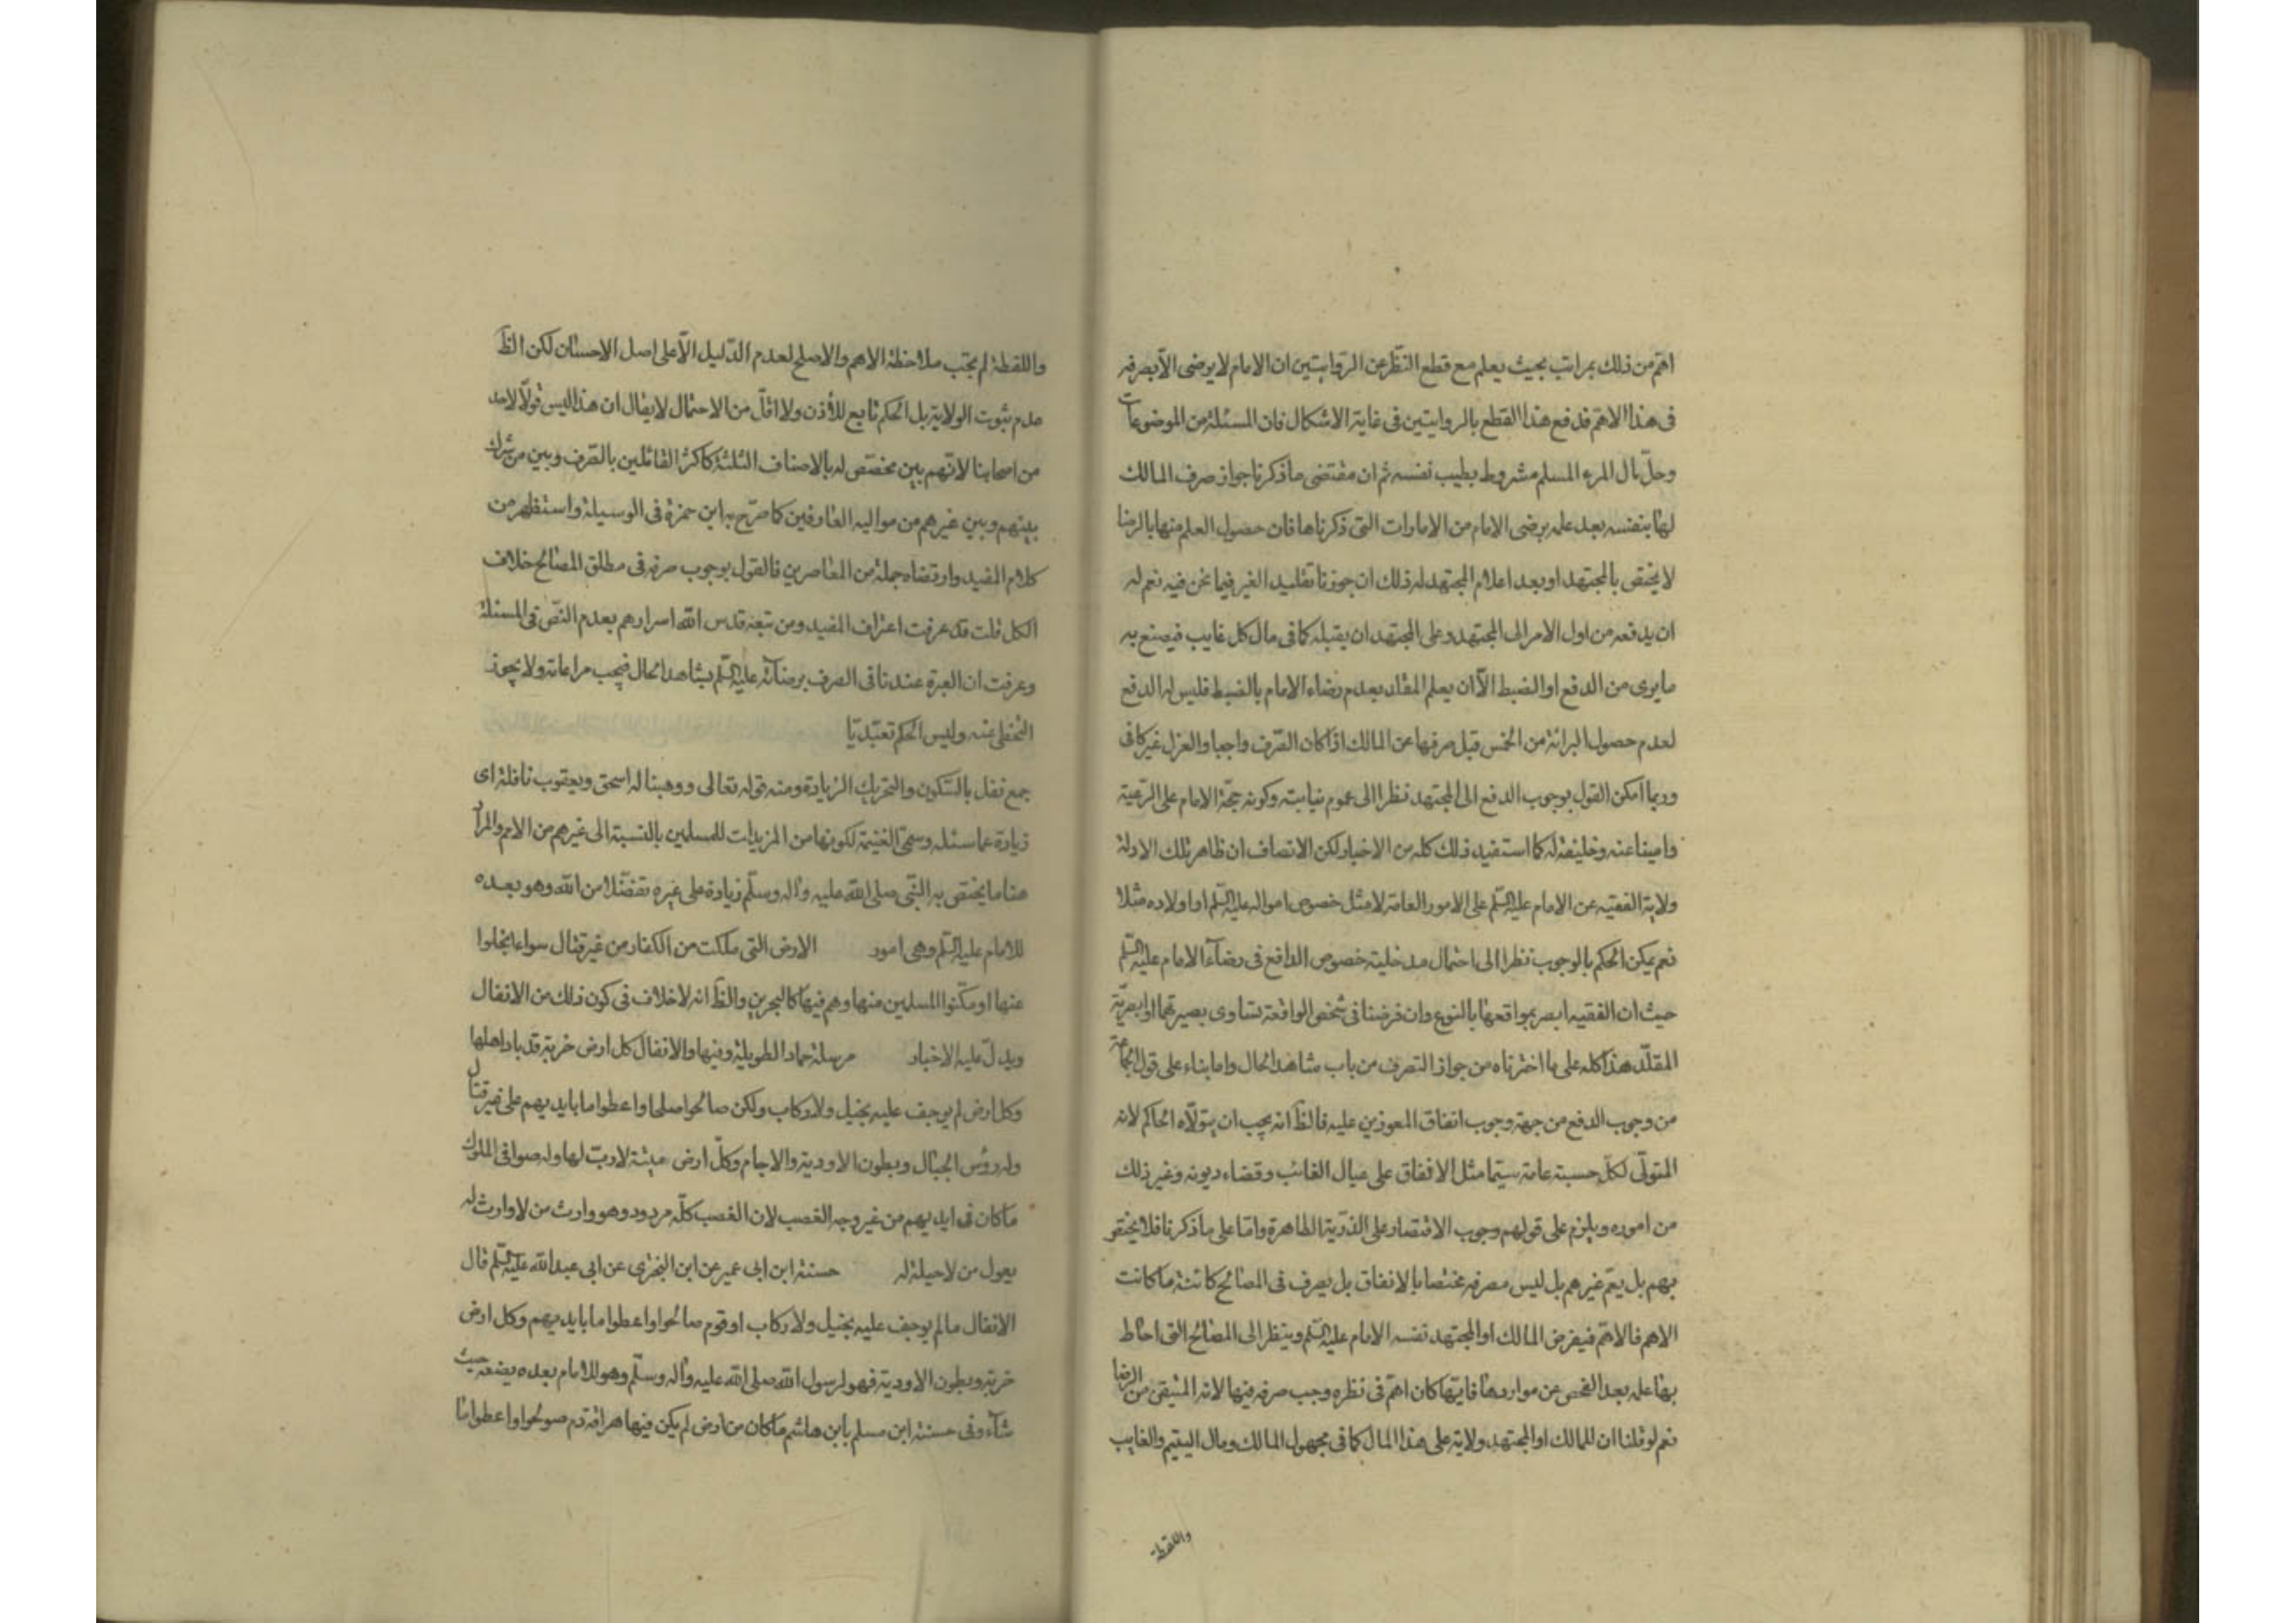 اهمّ من ذلك بمراتب بحيث يعلم مع قطع النّظر عن الرّوايتين ان الامام لا يرضى الّا بصرفه
فى هذا الاهمّ فدفع هذا القطع بالروايتين فى غاية الاشكال فان المسئلة من الموضوعات
وحلّ مال المرء المسلم مشروط بطيب نفسه ثم ان مقتضى ما ذكرنا جواز صرف المالك
لها بنفسه بعد علمه برضى الامام من الامارات التى ذكرناها فان حصول العلم منها بالرضا
لا يختص بالمجتهد او بعد اعلام المجتهد له ذلك ان جوزنا تقليد الغير فيما نحن فيه نعم له
ان يدفعه من اول الامر الى المجتهد وعلى المجتهد ان يقبله كما فى مال كل غايب فيصنع به
ما يرى من الدفع او الضبط الّا ان يعلم المقلد بعدم رضاء الامام بالضبط فليس له الدفع
لعدم حصول البرائة من الخمس قبل صرفها عن المالك اذا كان الصّرف واجبا والعزل غير كافى
وربما امكن القول بوجوب الدفع الى المجتهد نظرا الى عموم نيابته وكونه حجّة الامام على الرّعية
وامينا عنه وخليفة له كما استفيد ذلك كله من الاخبار لكن الانصاف ان ظاهر تلك الادلة
ولاية الفقيه عن الامام عليه السّلم على الامور العامة لا مثل خصوص امواله عليه السّلم او اولاده مثلا
نعم يمكن الحكم بالوجوب نظرا الى احتمال مدخلية خصوص الدافع فى رضاء الامام عليه السّلم
حيث ان الفقيه ابصر بمواقعها بالنوع وان فرضنا فى شخص الواقعة تساوى بصيرتهما او ابصريّة
المقلّد هذا كله على ما اخترناه من جواز التصرف من باب شاهد الحال واما بناء على قول الجماعة
من وجوب الدفع من جهة وجوب انفاق المعوزين عليه فالظّ انه يجب ان يتولّاه الحاكم لانه
المتولّى لكلّ حسبة عامة سيّما مثل الانفاق على عيال الغائب وقضاء ديونه وغير ذلك
من اموره ويلزم على قولهم وجوب الاقتصار على الذّرّية الطاهرة وامّا على ما ذكرنا فلا يختص
بهم بل يعمّ غيرهم بل ليس مصرفه مختصا بالانفاق بل يصرف فى المصالح كائنة ما كانت
الاهم فالاهمّ فيفرض المالك او المجتهد نفسه الامام عليه السّلم وينظر الى المصالح التى احاط
بها علمه بعد الفحص عن مواردها فايّها كان اهمّ فى نظره وجب صرفه فيها لانه المتيقن من الرضا
نعم لو قلنا ان للمالك او المجتهد ولاية على هذا المال كما فى مجهول المالك ومال اليتيم والغايب
واللقطة
واللقطة لم يجب ملاحظة الاهم والاصلح لعدم الدّليل الّا على اصل الاحسان لكن الظّ
عدم ثبوت الولاية بل الحكم تابع للأذن ولا اقلّ من الاحتمال لا يقال ان هذا ليس قولاً لاحد
من اصحابنا لانّهم بين مختصّ له بالاصناف الثلثة كاكثر القائلين بالصّرف وبين من شرك
بينهم وبين غيرهم من مواليه العارفين كما صرّح به ابن حمزة فى الوسيلة واستظهر من
كلام المفيد وارتضاه جملة من المعاصرين فالقول بوجوب صرفه فى مطلق المصالح خلاف
الكل قلت قد عرفت اعتراف المفيد ومن تبعه قدس الله اسرارهم بعدم النّصّ فى المسئلة
وعرفت ان العبرة عندنا فى الصرف برضائه عليه السّلم بشاهد الحال فيجب مراعاته ولا يجوز
التخطى عنه وليس الحكم تعبّديّا
جمع نفل بالسّكون والتحريك الزيادة ومنه قوله تعالى ووهبنا له اسحق ويعقوب نافلة اى
زيادة عما سئله وسمّى الغنيمة لكونها من المزيدات للمسلمين بالنسبة الى غيرهم من الامم والمراد
هنا ما يختص به النّبى صلى الله عليه وآله وسلّم زيادة على غيره تفضّلا من الله وهو بعده
للامام عليه السّلم وهى امور الارض التى ملكت من الكفار من غير قتال سواء انجلوا
عنها او مكّنوا المسلمين منها وهم فيها كالبحرين والظّ انه لا خلاف فى كون ذلك من الانفال
ويدلّ عليه الاخبار مرسلة حماد الطويلة وفيها والانفال كل ارض خربة قد باد اهلها
وكل ارض لم يوجف عليه بخيل ولا ركاب ولكن صالحوا صلحا واعطوا ما بايديهم على غير قتال
وله رؤس الجبال وبطون الاودية والاجام وكلّ ارض ميتة لا ربّ لها وله صوافى الملوك
ما كان فى ايديهم من غير وجه الغصب لان الغصب كلّه مردود وهو وارث من لا وارث له
يعول من لا حيلة له حسنة ابن ابى عمير عن ابن البخترى عن ابى عبد الله عليه السّلم قال
الانفال ما لم يوجف عليه بخيل ولا ركاب او قوم صالحوا واعطوا ما بايديهم وكل ارض
خربة وبطون الاودية فهو لرسول الله صلى الله عليه وآله وسلّم وهو للامام بعده يضعه حيث
شآء وفى حسنة ابن مسلم بابن هاشم ما كان من ارض لم يكن فيها هراقة دم صولحوا واعطوا ما